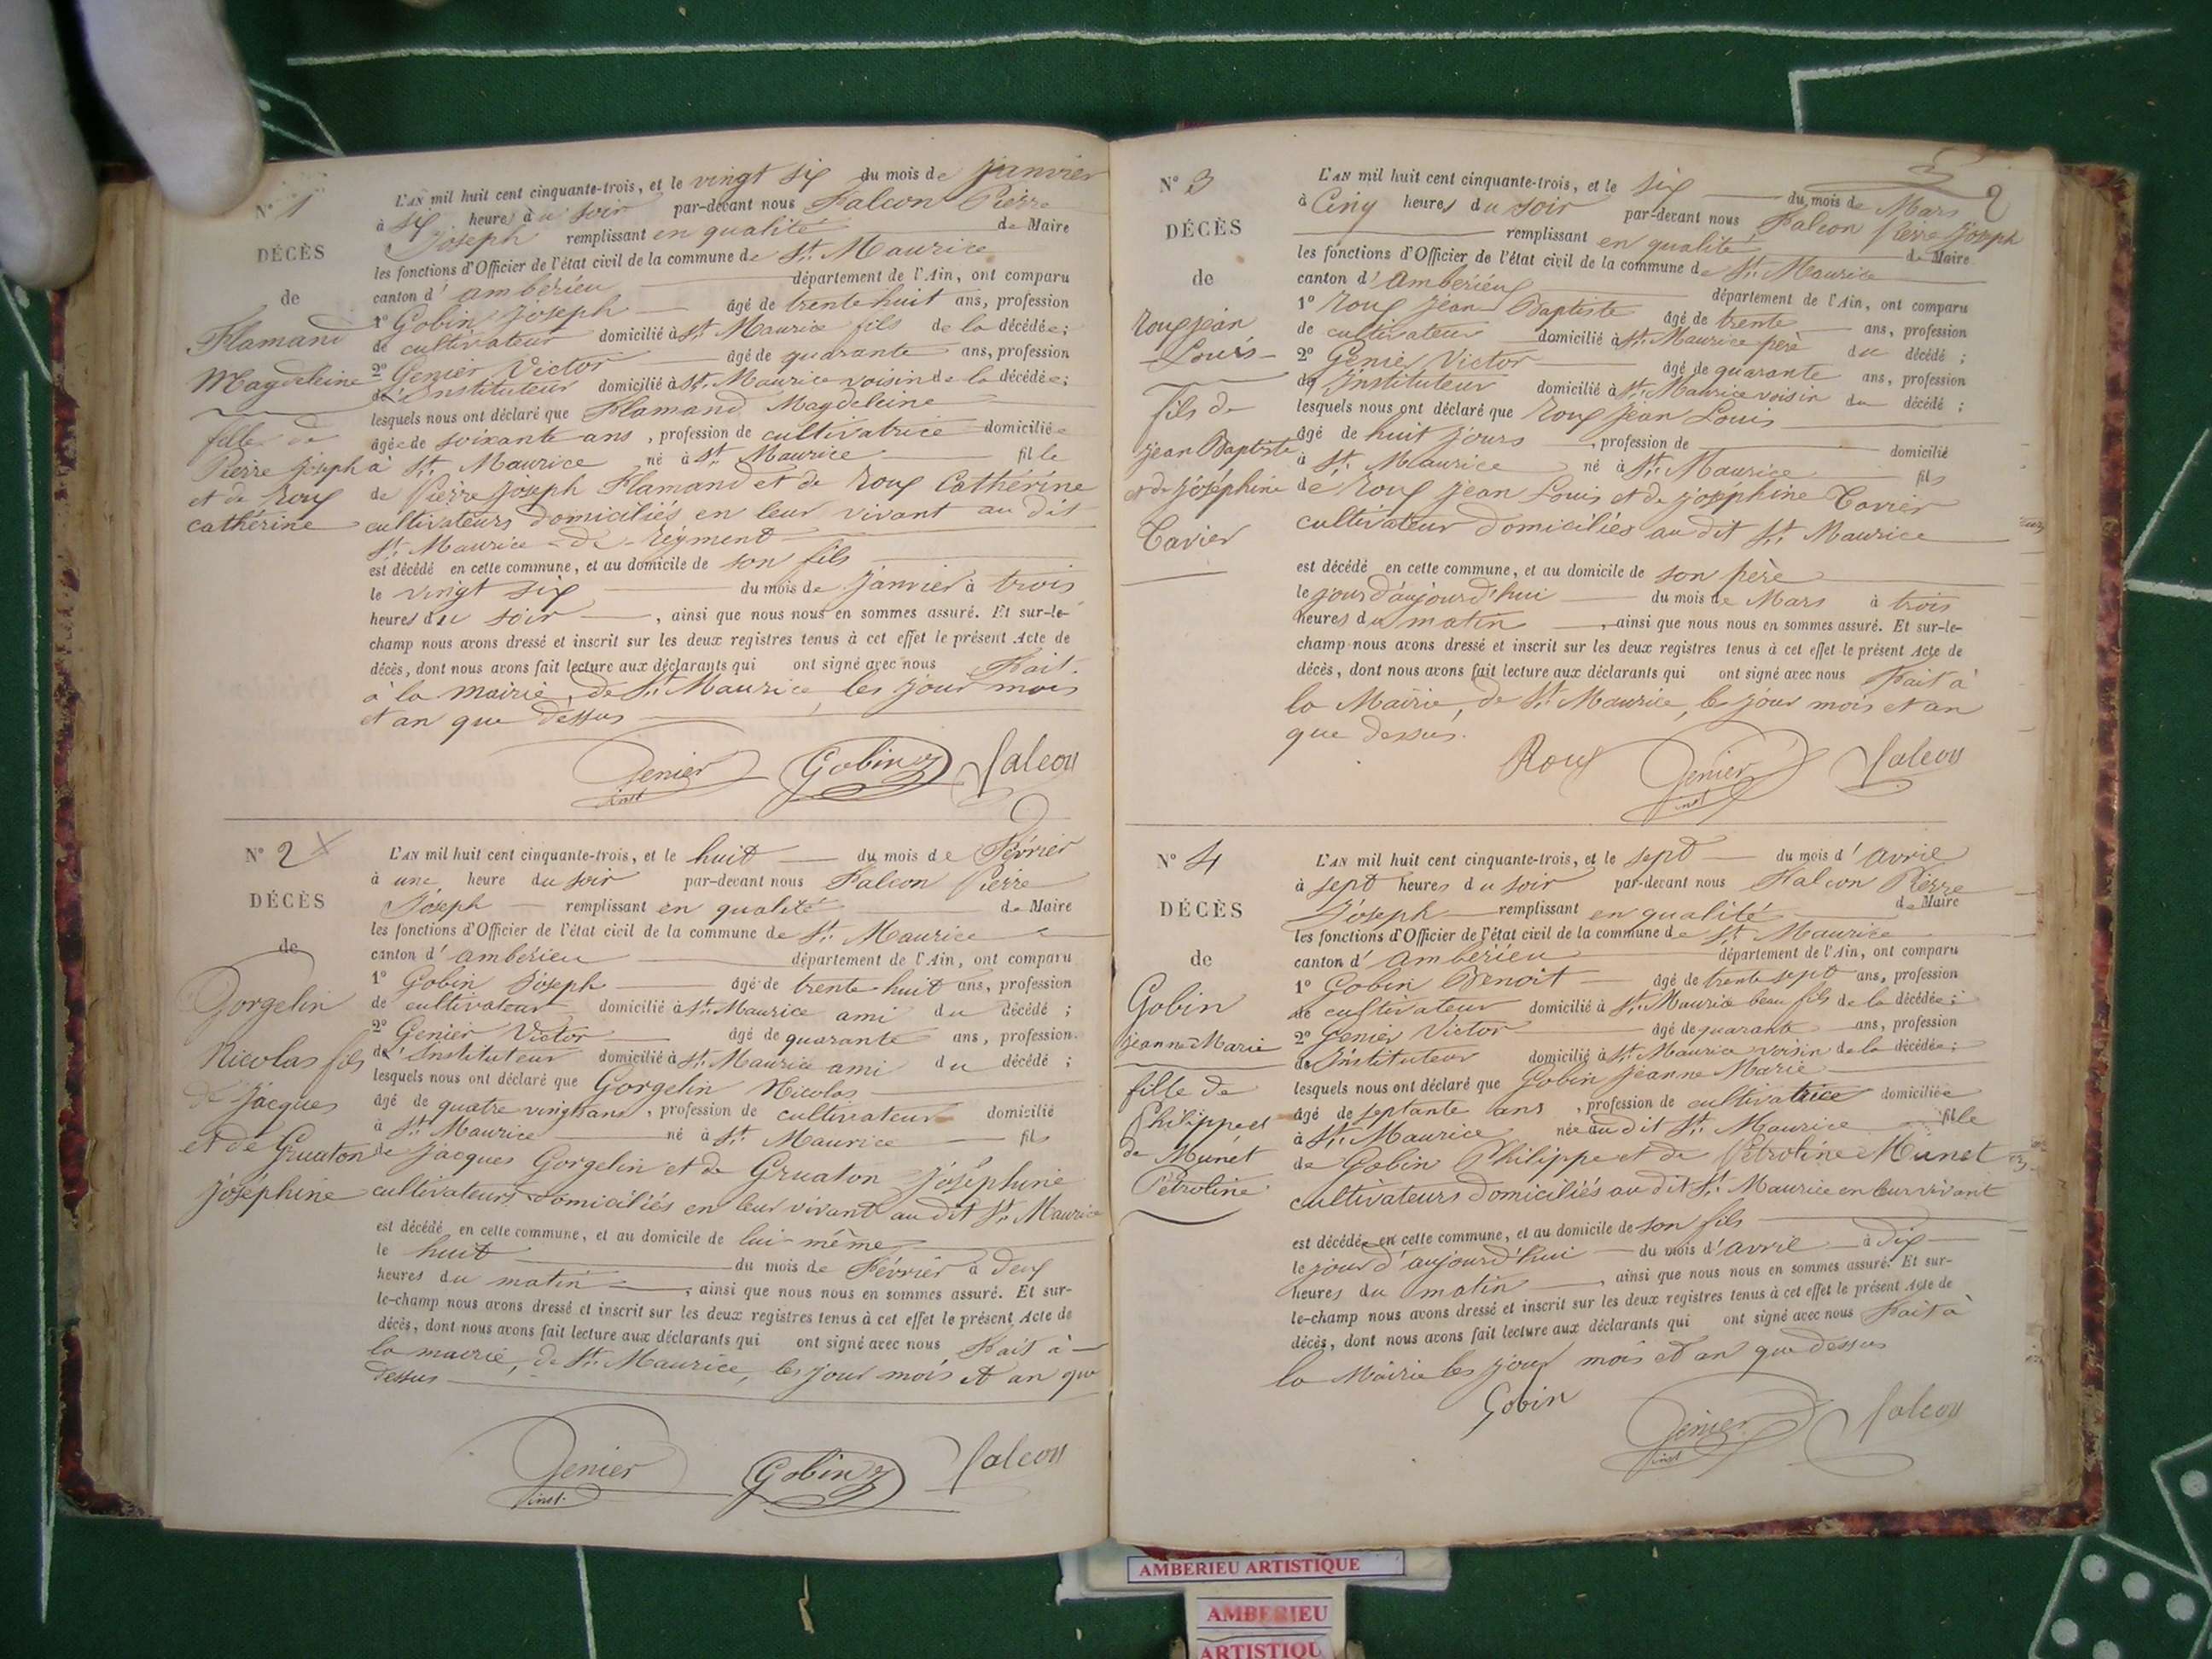 N° 1
DÉCÈS
de
Flamand
Magdeleine
fille de
Pierre joseph
et de roux
cathérine
L'AN mil huit cent cinquante-trois, et le vingt six du mois de janvier
à six heures du soir par-devant nous Falcon Pierre
Joseph remplissant en qualité de Maire
les fonctions d'Officier de l'état civil de la commune de St. Maurice
canton d' ambérieu département de l'Ain, ont comparu
1° Gobin joseph âgé de trente huit ans, profession
de cultivateur domicilié à St. Maurice fils de la décédée;
2° Genier Victor âgé de quarante ans, profession
de Instituteur domicilié à St. Maurice voisin de la décédée;
lesquels nous ont déclaré que Flamand Magdeleine
âgée de soixante ans, profession de cultivatrice domiciliée
à St. Maurice né à St. Maurice fille
de Pierre joseph Flamand et de roux Cathérine
cultivateurs domiciliés en leur vivant au dit
St. Maurice de régment
est décédé en cette commune, et au domicile de son fils
le vingt six du mois de janvier à trois
heures du soir, ainsi que nous nous en sommes assuré. Et sur-le-
champ nous avons dressé et inscrit sur les deux registres tenus à cet effet le présent Acte de
décès, dont nous avons fait lecture aux déclarants qui ont signé avec nous Fait
à la mairie, de St. Maurice, les jour mois
et an que dessus
Genier inst Gobin Falcon
N° 2
DÉCÈS
de
Gorgelin
Nicolas fils
de jacques
et de Gruaton
joséphine
L'AN mil huit cent cinquante-trois, et le huit du mois de Février
à une heure du soir par-devant nous Falcon Pierre
Joseph remplissant en qualité de Maire
les fonctions d'Officier de l'état civil de la commune de St. Maurice
canton d' ambérieu département de l'Ain, ont comparu
1° Gobin Joseph âgé de trente huit ans, profession
de cultivateur domicilié à St. Maurice ami du décédé;
2° Genier Victor âgé de quarante ans, profession
de Instituteur domicilié à St. Maurice ami du décédé;
lesquels nous ont déclaré que Gorgelin Nicolas
âgé de quatre vingts ans, profession de cultivateur domicilié
à St. Maurice né à St. Maurice fils
de jacques Gorgelin et de Gruaton joséphine
cultivateurs domiciliés en leur vivant au dit St. Maurice
est décédé en cette commune, et au domicile de lui-même
le huit du mois de Février à deux
heures du matin, ainsi que nous nous en sommes assuré. Et sur-
le-champ nous avons dressé et inscrit sur les deux registres tenus à cet effet le présent Acte de
décès, dont nous avons fait lecture aux déclarants qui ont signé avec nous Fait à
la mairie, de St. Maurice, les jour mois et an que
dessus
Genier inst. Gobin Falcon
2
N° 3
DÉCÈS
de
roux jean
Louis
fils de
jean Baptiste
et de joséphine
Cavier
L'AN mil huit cent cinquante-trois, et le six du mois de Mars
à Cinq heures du soir par-devant nous Falcon Pierre joseph
remplissant en qualité de Maire
les fonctions d'Officier de l'état civil de la commune de St. Maurice
canton d' ambérieu département de l'Ain, ont comparu
1° roux jean Baptiste âgé de trente ans, profession
de cultivateur domicilié à St. Maurice père du décédé;
2° Genier Victor âgé de quarante ans, profession
de Instituteur domicilié à St. Maurice voisin du décédé;
lesquels nous ont déclaré que roux jean Louis
âgé de huit jours, profession de domicilié
à St. Maurice né à St. Maurice fils
de roux jean Louis et de joséphine Cavier
cultivateur domiciliés au dit St. Maurice
est décédé en cette commune, et au domicile de son père
le jour d'aujourd'hui du mois de Mars à trois
heures du matin, ainsi que nous nous en sommes assuré. Et sur-le-
champ nous avons dressé et inscrit sur les deux registres tenus à cet effet le présent Acte de
décès, dont nous avons fait lecture aux déclarants qui ont signé avec nous Fait à
la Mairie, de St. Maurice, les jour mois et an
que dessus.
Roux Genier inst Falcon
N° 4
DÉCÈS
de
Gobin
jeanne Marie
fille de
Philippe et
de Munet
Pétroline
L'AN mil huit cent cinquante-trois, et le sept du mois d' avril
à sept heures du soir par-devant nous Falcon Pierre
Joseph remplissant en qualité de Maire
les fonctions d'Officier de l'état civil de la commune de St. Maurice
canton d' ambérieu département de l'Ain, ont comparu
1° Gobin Benoit âgé de trente sept ans, profession
de cultivateur domicilié à St. Maurice beau fils de la décédée;
2° Genier Victor âgé de quarante ans, profession
de Instituteur domicilié à St. Maurice voisin de la décédée;
lesquels nous ont déclaré que Gobin jeanne Marie
âgé de septante ans, profession de cultivatrice domiciliée
à St. Maurice née au dit St. Maurice fille
de Gobin Philippe et de Pétroline Munet
cultivateurs domiciliés au dit St. Maurice en leur vivant
est décédée en cette commune, et au domicile de son fils
le jour d'aujourd'hui du mois d' avril à dix
heures du matin, ainsi que nous nous en sommes assuré. Et sur-
le-champ nous avons dressé et inscrit sur les deux registres tenus à cet effet le présent Acte de
décès, dont nous avons fait lecture aux déclarants qui ont signé avec nous Fait à
la Mairie les jour mois et an que dessus
Gobin Genier inst Falcon
AMBERIEU ARTISTIQUE
AMBERIEU
ARTISTIQU